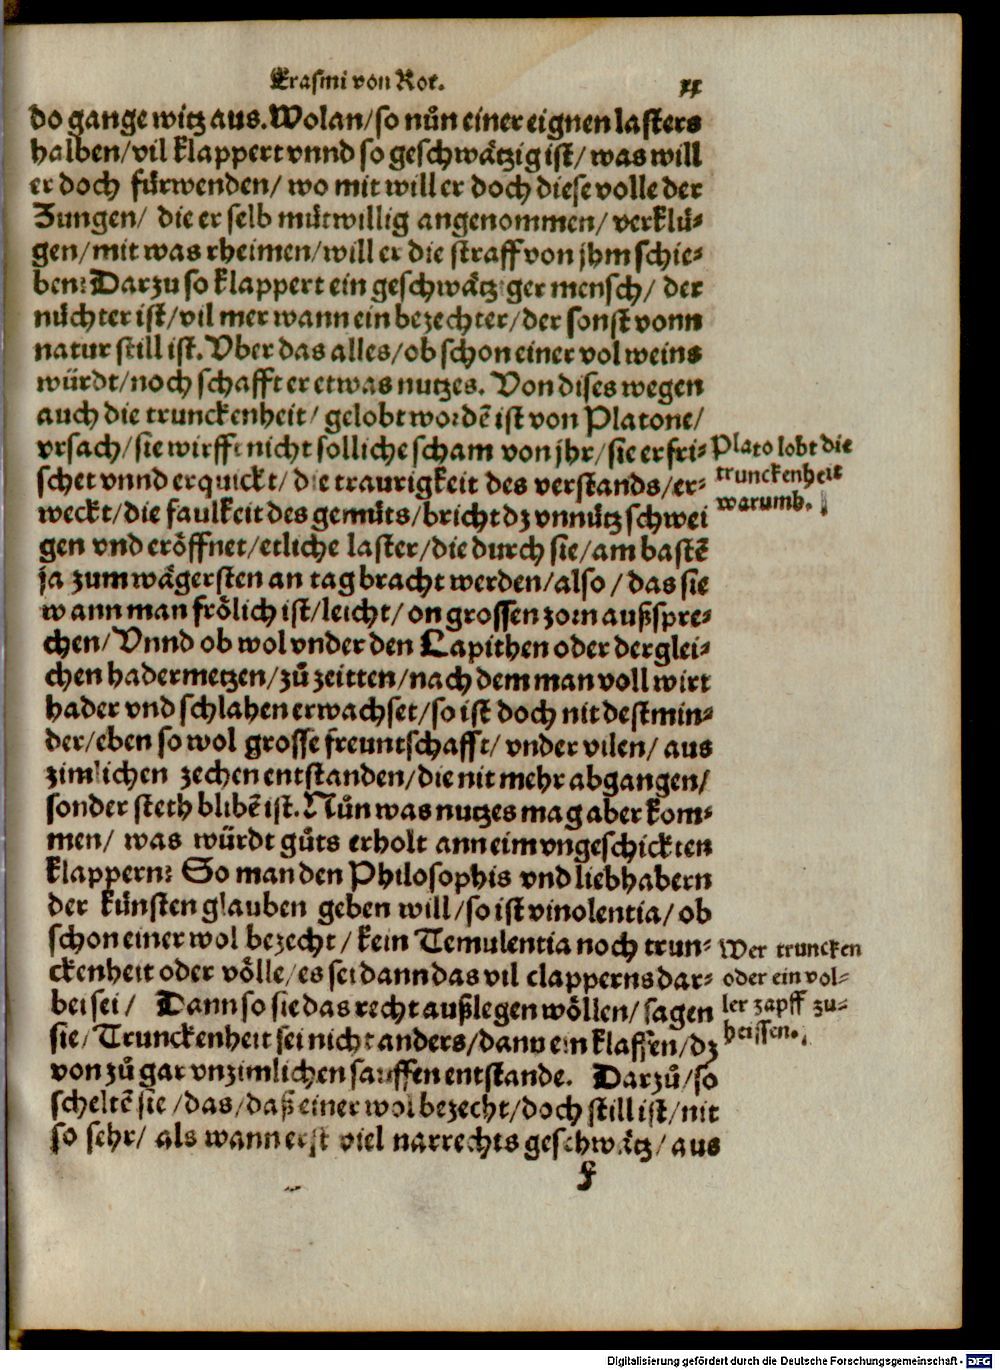 Erasmi von Rot.
xx
do gange witz aus. Wolan/ so nůn einer eignen lasters
halben/ vil klappert vnnd so geschwätzig ist/ was will
er doch fürwenden/ wo mit will er doch diese volle der
Zungen/ die er selb můtwillig angenommen/ verklů⸗
gen/ mit was rheimen/ will er die straff von jhm schie⸗
ben? Darzu so klappert ein geschwätziger mensch/ der
nüchter ist/ vil mer wann ein bezechter/ der sonst vonn
natur still ist. Vber das alles/ ob schon einer vol weins
würdt/ noch schafft er etwas nutzes. Von dises wegen
auch die trunckenheit/ gelobt wordē ist von Platone/
vrsach/ sie wirfft nicht solliche scham von jhr/ sie erfri⸗
schet vnnd erquickt/ die traurigkeit des verstands/ er⸗
weckt/ die faulkeit des gemůts/ bricht dz vnnütz schwei
gen vnd eröffnet/ etliche laster/ die durch sie/ am bastē
ja zum wägersten an tag bracht werden/ also/ das sie
wann man frölich ist/ leicht/ on grossen zorn außspre⸗
chen/ Vnnd ob wol vnder den Lapithen oder derglei⸗
chen hadermetzen/ zů zeitten/ nach dem man voll wirt
hader vnd schlahen erwachset/ so ist doch nit destmin⸗
der/ eben so wol grosse freuntschafft/ vnder vilen/ aus
zimlichen zechen entstanden/ die nit mehr abgangen/
sonder steth blibē ist. Nůn was nutzes mag aber kom⸗
men/ was würdt gůts erholt ann eim vngeschickten
klappern? So man den Philosophis vnd liebhabern
der künsten glauben geben will/ so ist vinolentia/ ob
schon einer wol bezecht/ kein Temulentia noch trun⸗
ckenheit oder völle/ es sei dann das vil clapperns dar⸗
bei sei/ Dann so sie das recht außlegen wöllen/ sagen
sie/ Trunckenheit sei nicht anders/ dann ein klaffen/ dz
von zů gar vnzimlichen sauffen entstande. Darzů/ so
scheltē sie/ das/ daß einer wol bezecht/ doch still ist/ nit
so sehr/ als wann erst viel narrechts geschwätz/ aus
f
Plato lobt die
trunckenheit
warumb.
Wer truncken
oder ein vol⸗
ler zapff zu⸗
heissen.
Digitalisierung gefördert durch die Deutsche Forschungsgemeinschaft - DFG